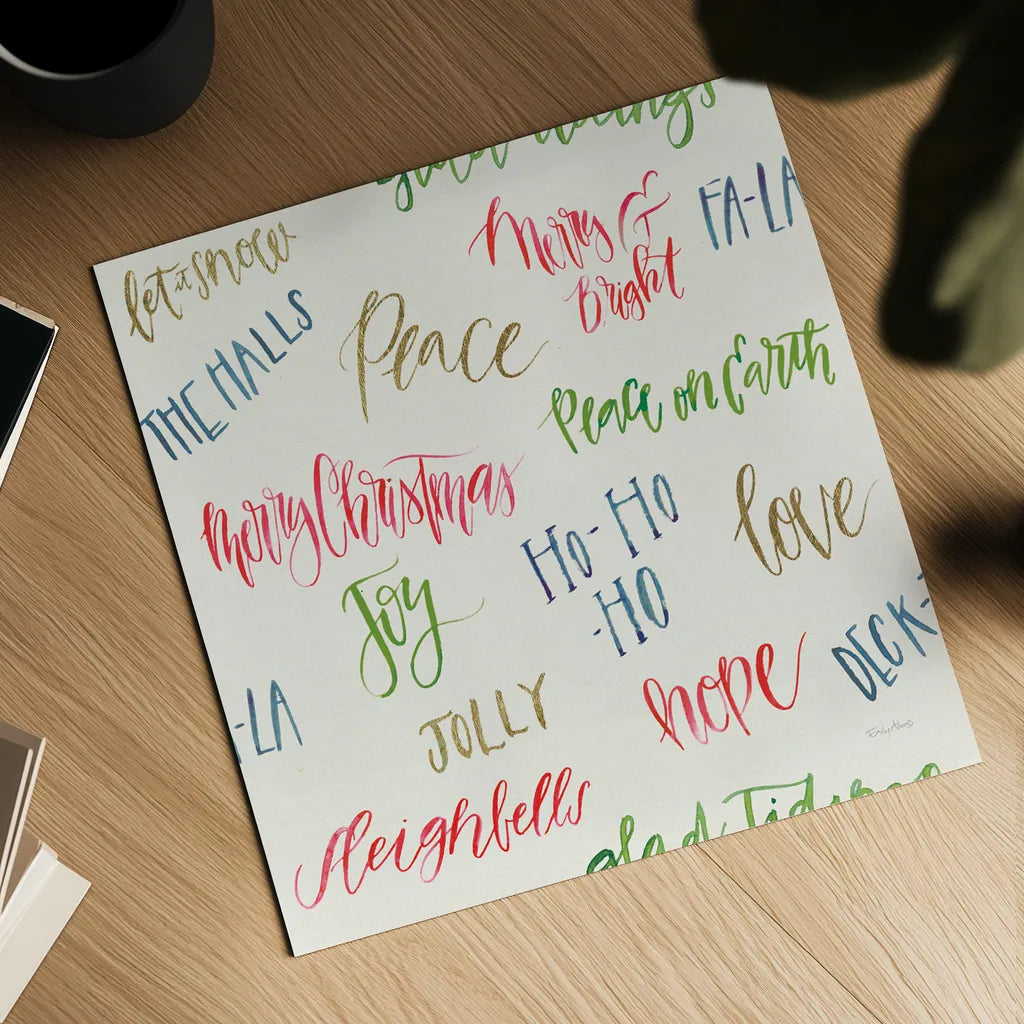 glad tidings
let it snow
Merry &
Bright
FA-LA
THE HALLS
Peace
Peace on Earth
Merry Christmas
Ho-Ho
-HO
love
Joy
DECK-
-LA
JOLLY
hope
Sleighbells
glad Tidings